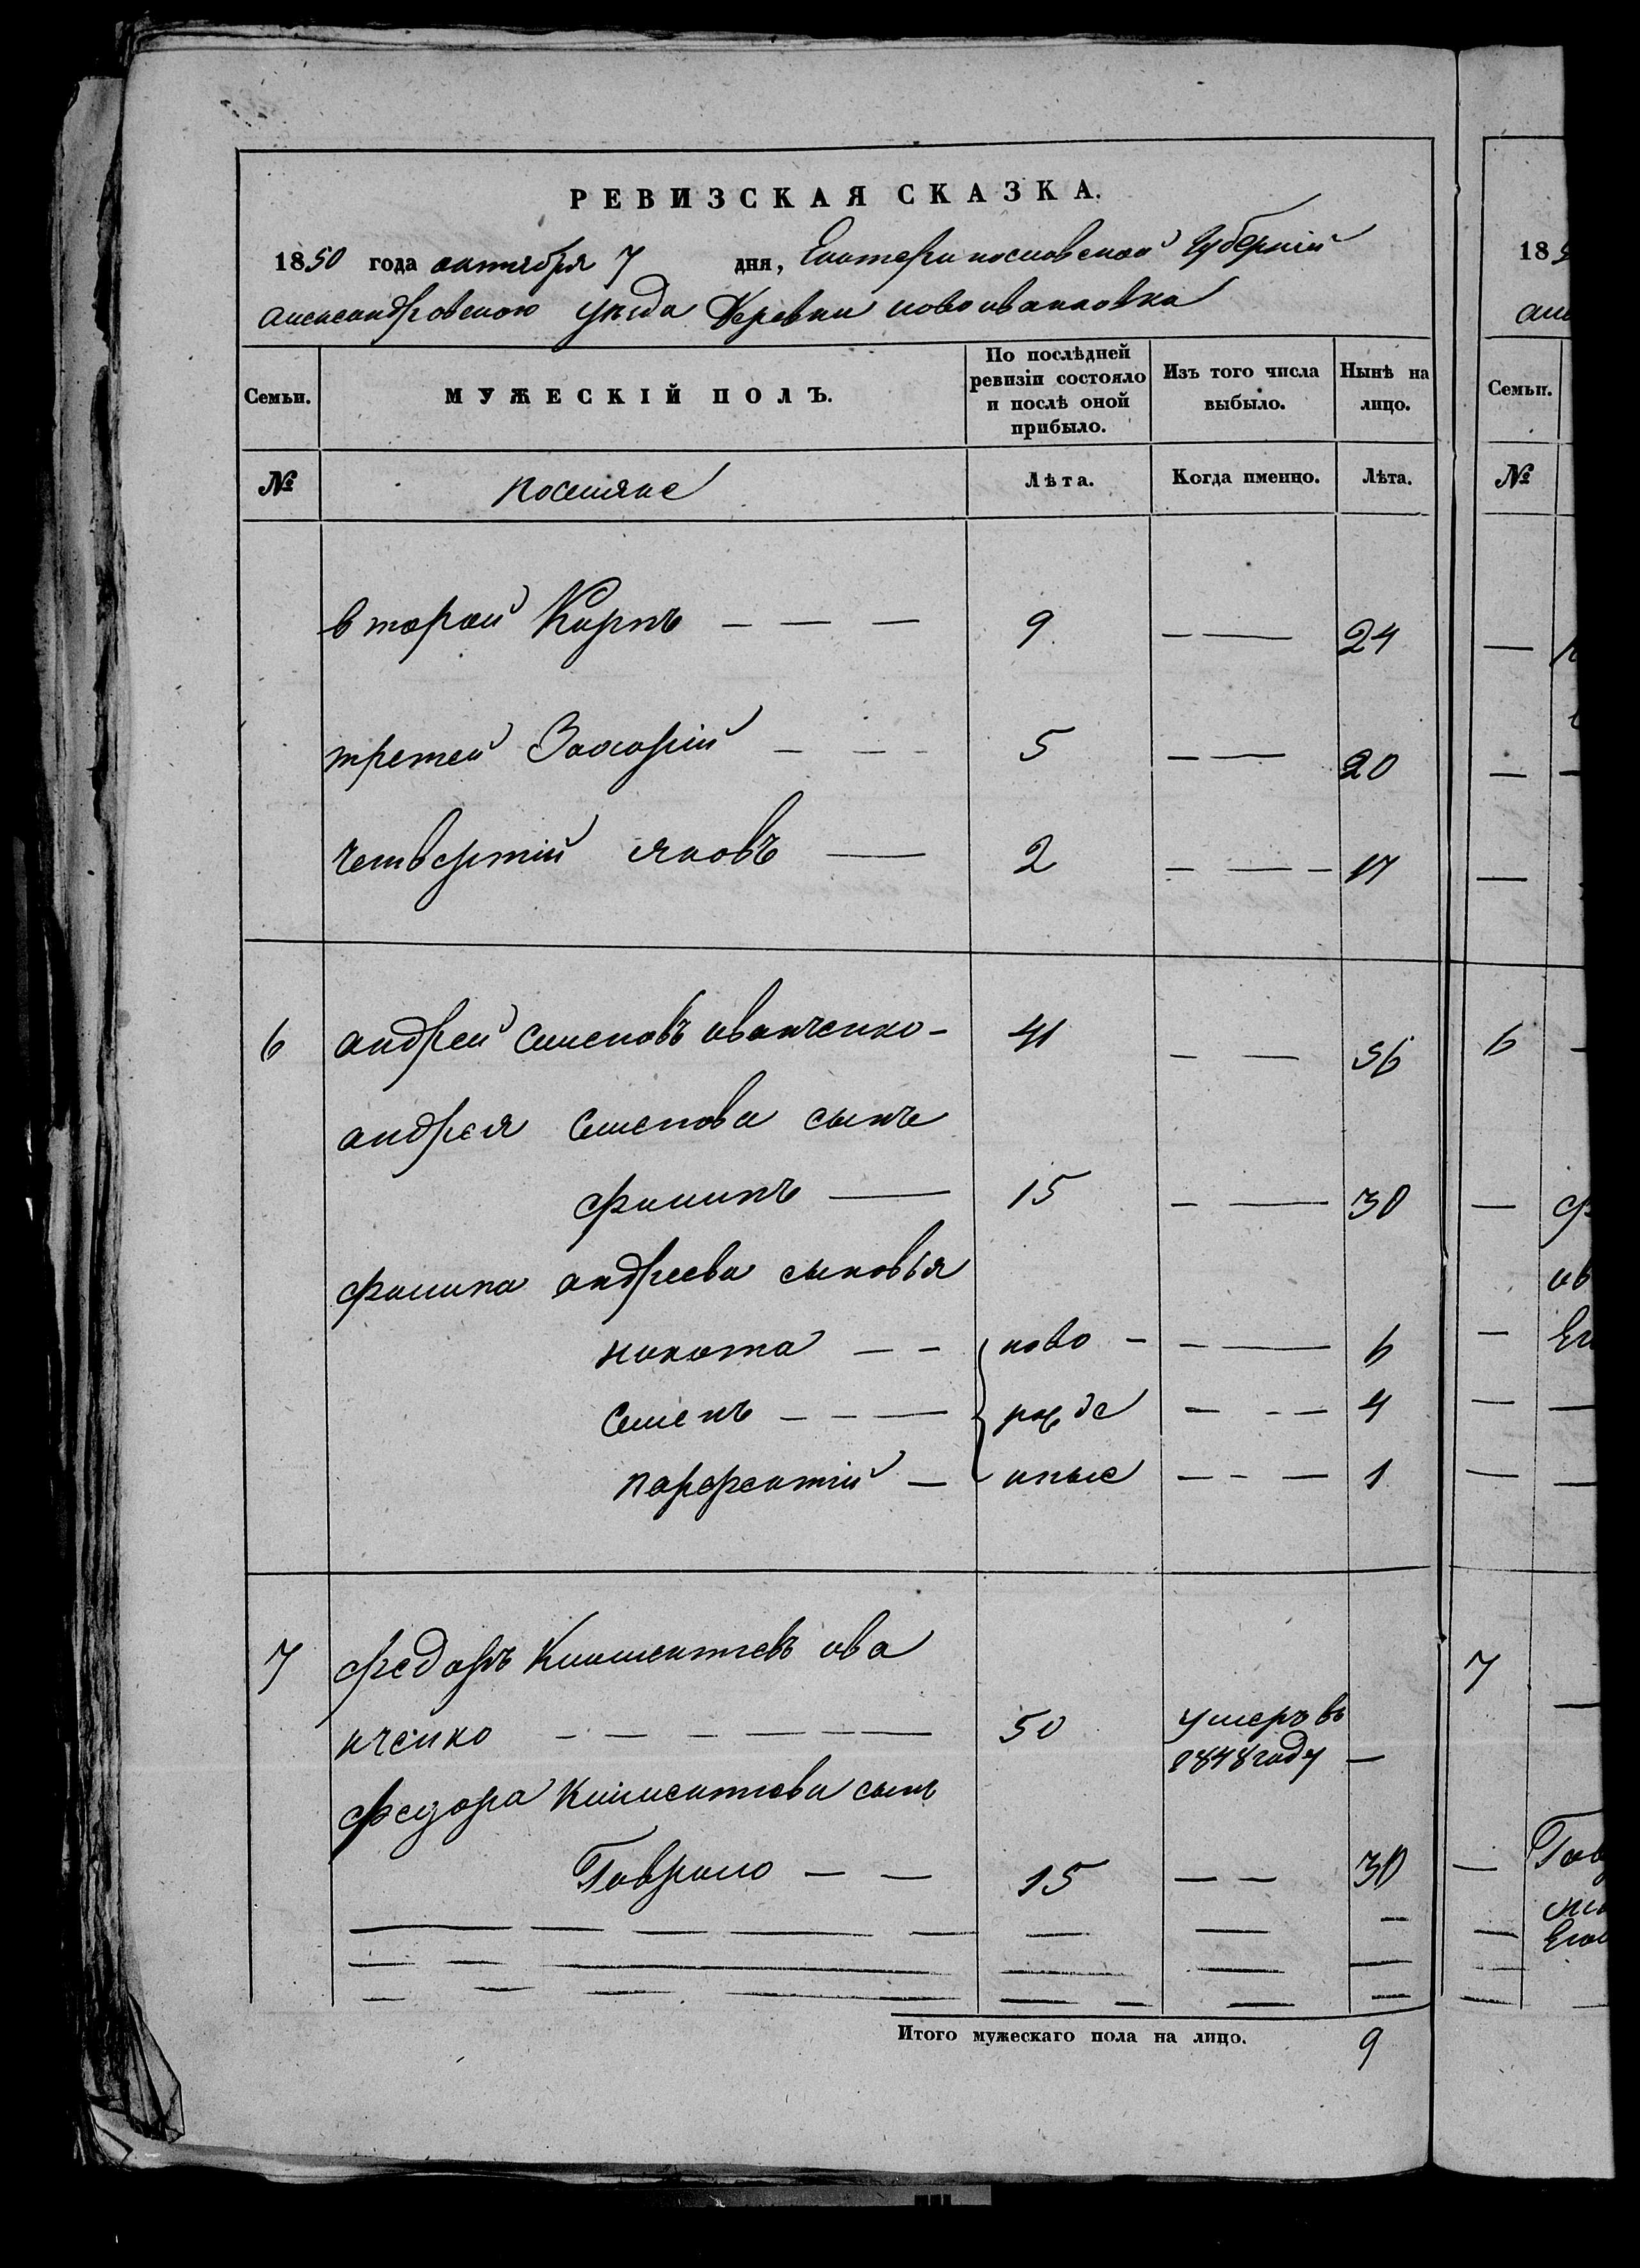 РЕВИЗСКАЯ СКАЗКА.
1850 года октября 7 дня, Екатеринославской Губерніи
александровского уезда Деревни новоивановка
Семьи. МУЖЕСКІЙ ПОЛЪ. По послѣдней ревизіи состояло и послѣ оной прибыло. Изъ того числа выбыло. Нынѣ на лицо.
№ поселяне Лѣта. Когда именно. Лѣта.
второй Карпъ — — — 9 — — 24
третей Захарій — — — 5 — — 20
четвертій яковъ — 2 — — — 17
6 андрей семеновъ иванченко — 41 — — 56
андрея семенова сынъ
филипъ — 15 — — 30
филипа андреева сыновья
никита — — ново — — — 6
семенъ — — — рожде — — — 4
парфентій — нные — — — 1
7 федоръ Климентіевъ ива
нченко — — — — — — 50 умеръ въ
1848 году —
федора климентіева сынъ
Гаврило — — 15 — — 30
Итого мужескаго пола на лицо. 9
185
Семьи.
№
6
7